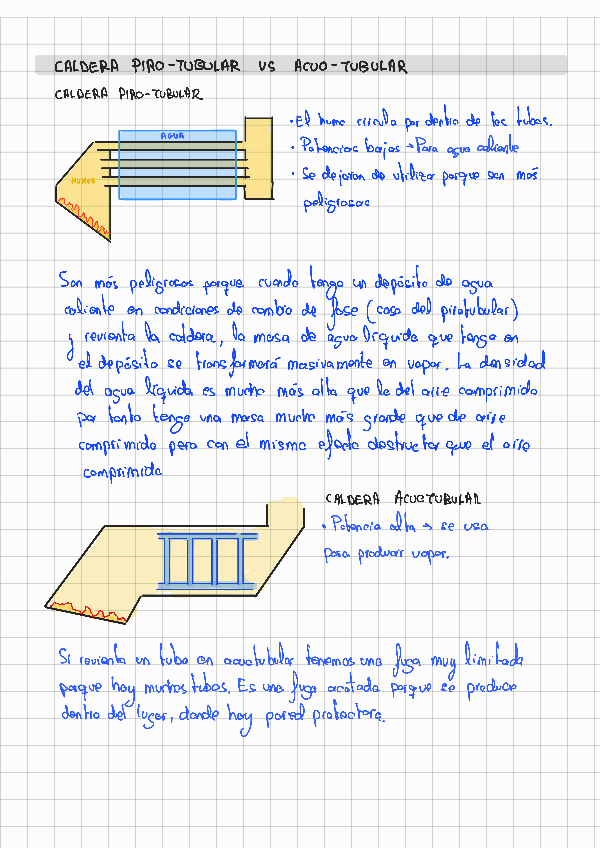 CALDERA PIRO-TUBULAR VS ACUO-TUBULAR
CALDERA PIRO-TUBULAR
AGUA
HUMOS
• El humo circula por dentro de los tubos.
• Potencias bajas → Para agua caliente
• Se dejaron de utilizar porque son más
peligrosas
Son más peligrosos porque cuando tengo un depósito de agua
caliente en condiciones de cambio de fase (caso del pirotubular)
y revienta la caldera, la masa de agua líquida que tengo en
el depósito se transformará masivamente en vapor. La densidad
del agua líquida es mucho más alta que la del aire comprimido
por tanto tengo una masa mucho más grande que de aire
comprimido pero con el mismo efecto destructor que el aire
comprimido
CALDERA ACUOTUBULAR
• Potencia alta → se usa
para producir vapor.
Si revienta un tubo en acuotubular tenemos una fuga muy limitada
porque hay muchos tubos. Es una fuga acotada porque se produce
dentro del lugar, donde hay pared protectora.